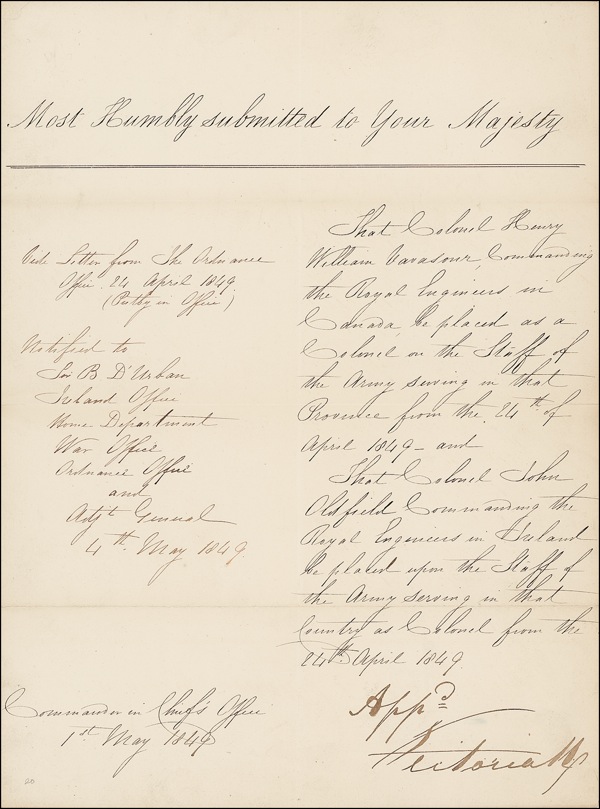 Most Humbly submitted to Your Majesty
Vide Letter from The Ordnance
Office 24 April 1849
(Put by in Office)
Notified to
Sir B D'Urban
Ireland Office
Home Department
War Office
Ordnance Office
and
Adjt General
4th May 1849
Commander in Chief's Office
1st May 1849
That Colonel Henry
William Vavasour, Commanding
the Royal Engineers in
Canada, be placed as a
Colonel on the Staff of
the Army serving in that
Province from the 24th of
April 1849 - and
That Colonel John
Oldfield Commanding the
Royal Engineers in Ireland
be placed upon the Staff of
the Army serving in that
Country as Colonel from the
24th April 1849.
Appd
Victoria R